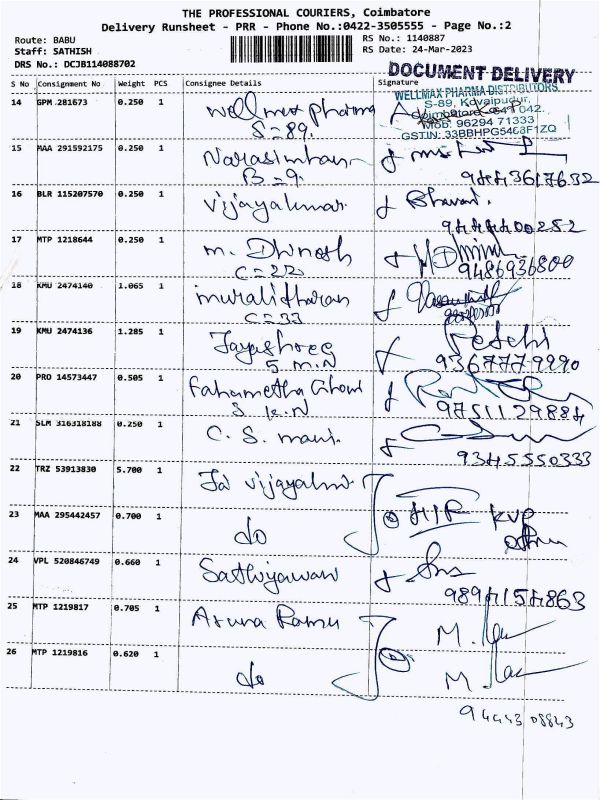 THE PROFESSIONAL COURIERS, Coimbatore
Delivery Runsheet - PRR - Phone No.:0422-3505555 - Page No.:2
Route: BABU
RS No.: 1140887
Staff: SATHISH
RS Date: 24-Mar-2023
DRS No.: DCJB114088702
DOCUMENT DELIVERY
S No Consignment No Weight PCS Consignee Details Signature
WELLMAX PHARMA DISTRIBUTORS
S-89, Kovaipudur,
Coimbatore - 641 042.
Mob: 96294 71333
GSTIN: 33BBHPG5468F1ZQ
14 GPM 281673 0.250 1 Wellmax pharma
S-89.
15 MAA 291592175 0.250 1 Narasimhan
B-9.
16 BLR 115207570 0.250 1 Vijayakumar
17 MTP 1218644 0.250 1 M. Dhinesh
C-22
9486936800
18 KMU 2474140 1.065 1 muralitharan
C-33
19 KMU 2474136 1.285 1 Jayashree
5 M.N
9367779990
20 PRO 14573447 0.505 1
S K.N
9751129884
21 SLM 316318188 0.250 1 C. S. mani.
9345550333
22 TRZ 53913830 5.700 1
23 MAA 295442457 0.700 1 do
24 VPL 520846749 0.660 1
9894154863
25 MTP 1219817 0.705 1 Aruna Ramu
26 MTP 1219816 0.620 1 do
94443 08843